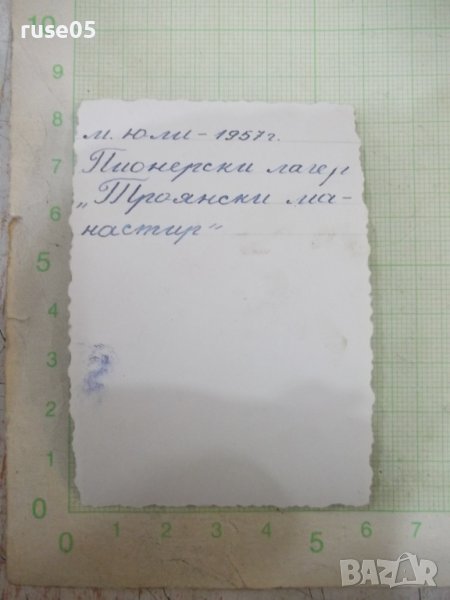 ruse05
м. юли - 1957 г.
Пионерски лагер
„Троянски ма-
настир"
10
9
8
7
6
5
4
3
2
1
0
0
5
6
7
BAZAR